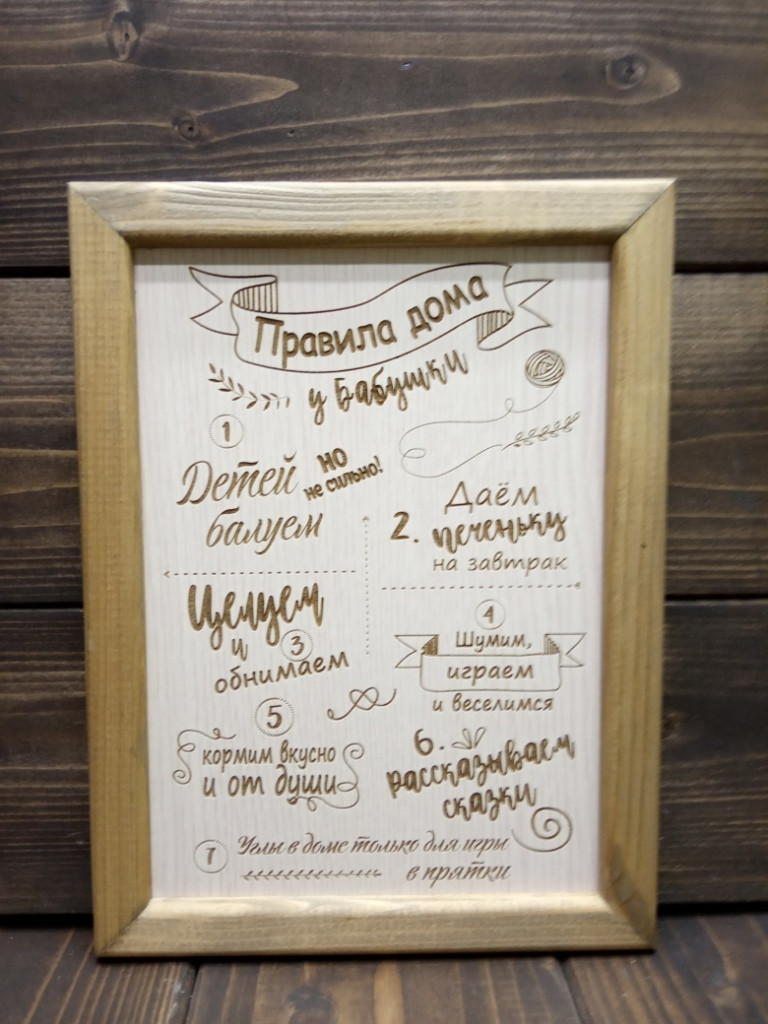 Правила дома
у Бабушки
1
Детей но
не сильно!
балуем
2. Даём
печеньку
на завтрак
Целуем
и 3
обнимаем
4
Шумим,
играем
и веселимся
5
кормим вкусно
и от души
6.
рассказываем
сказки
7 Углы в доме только для игры
в прятки